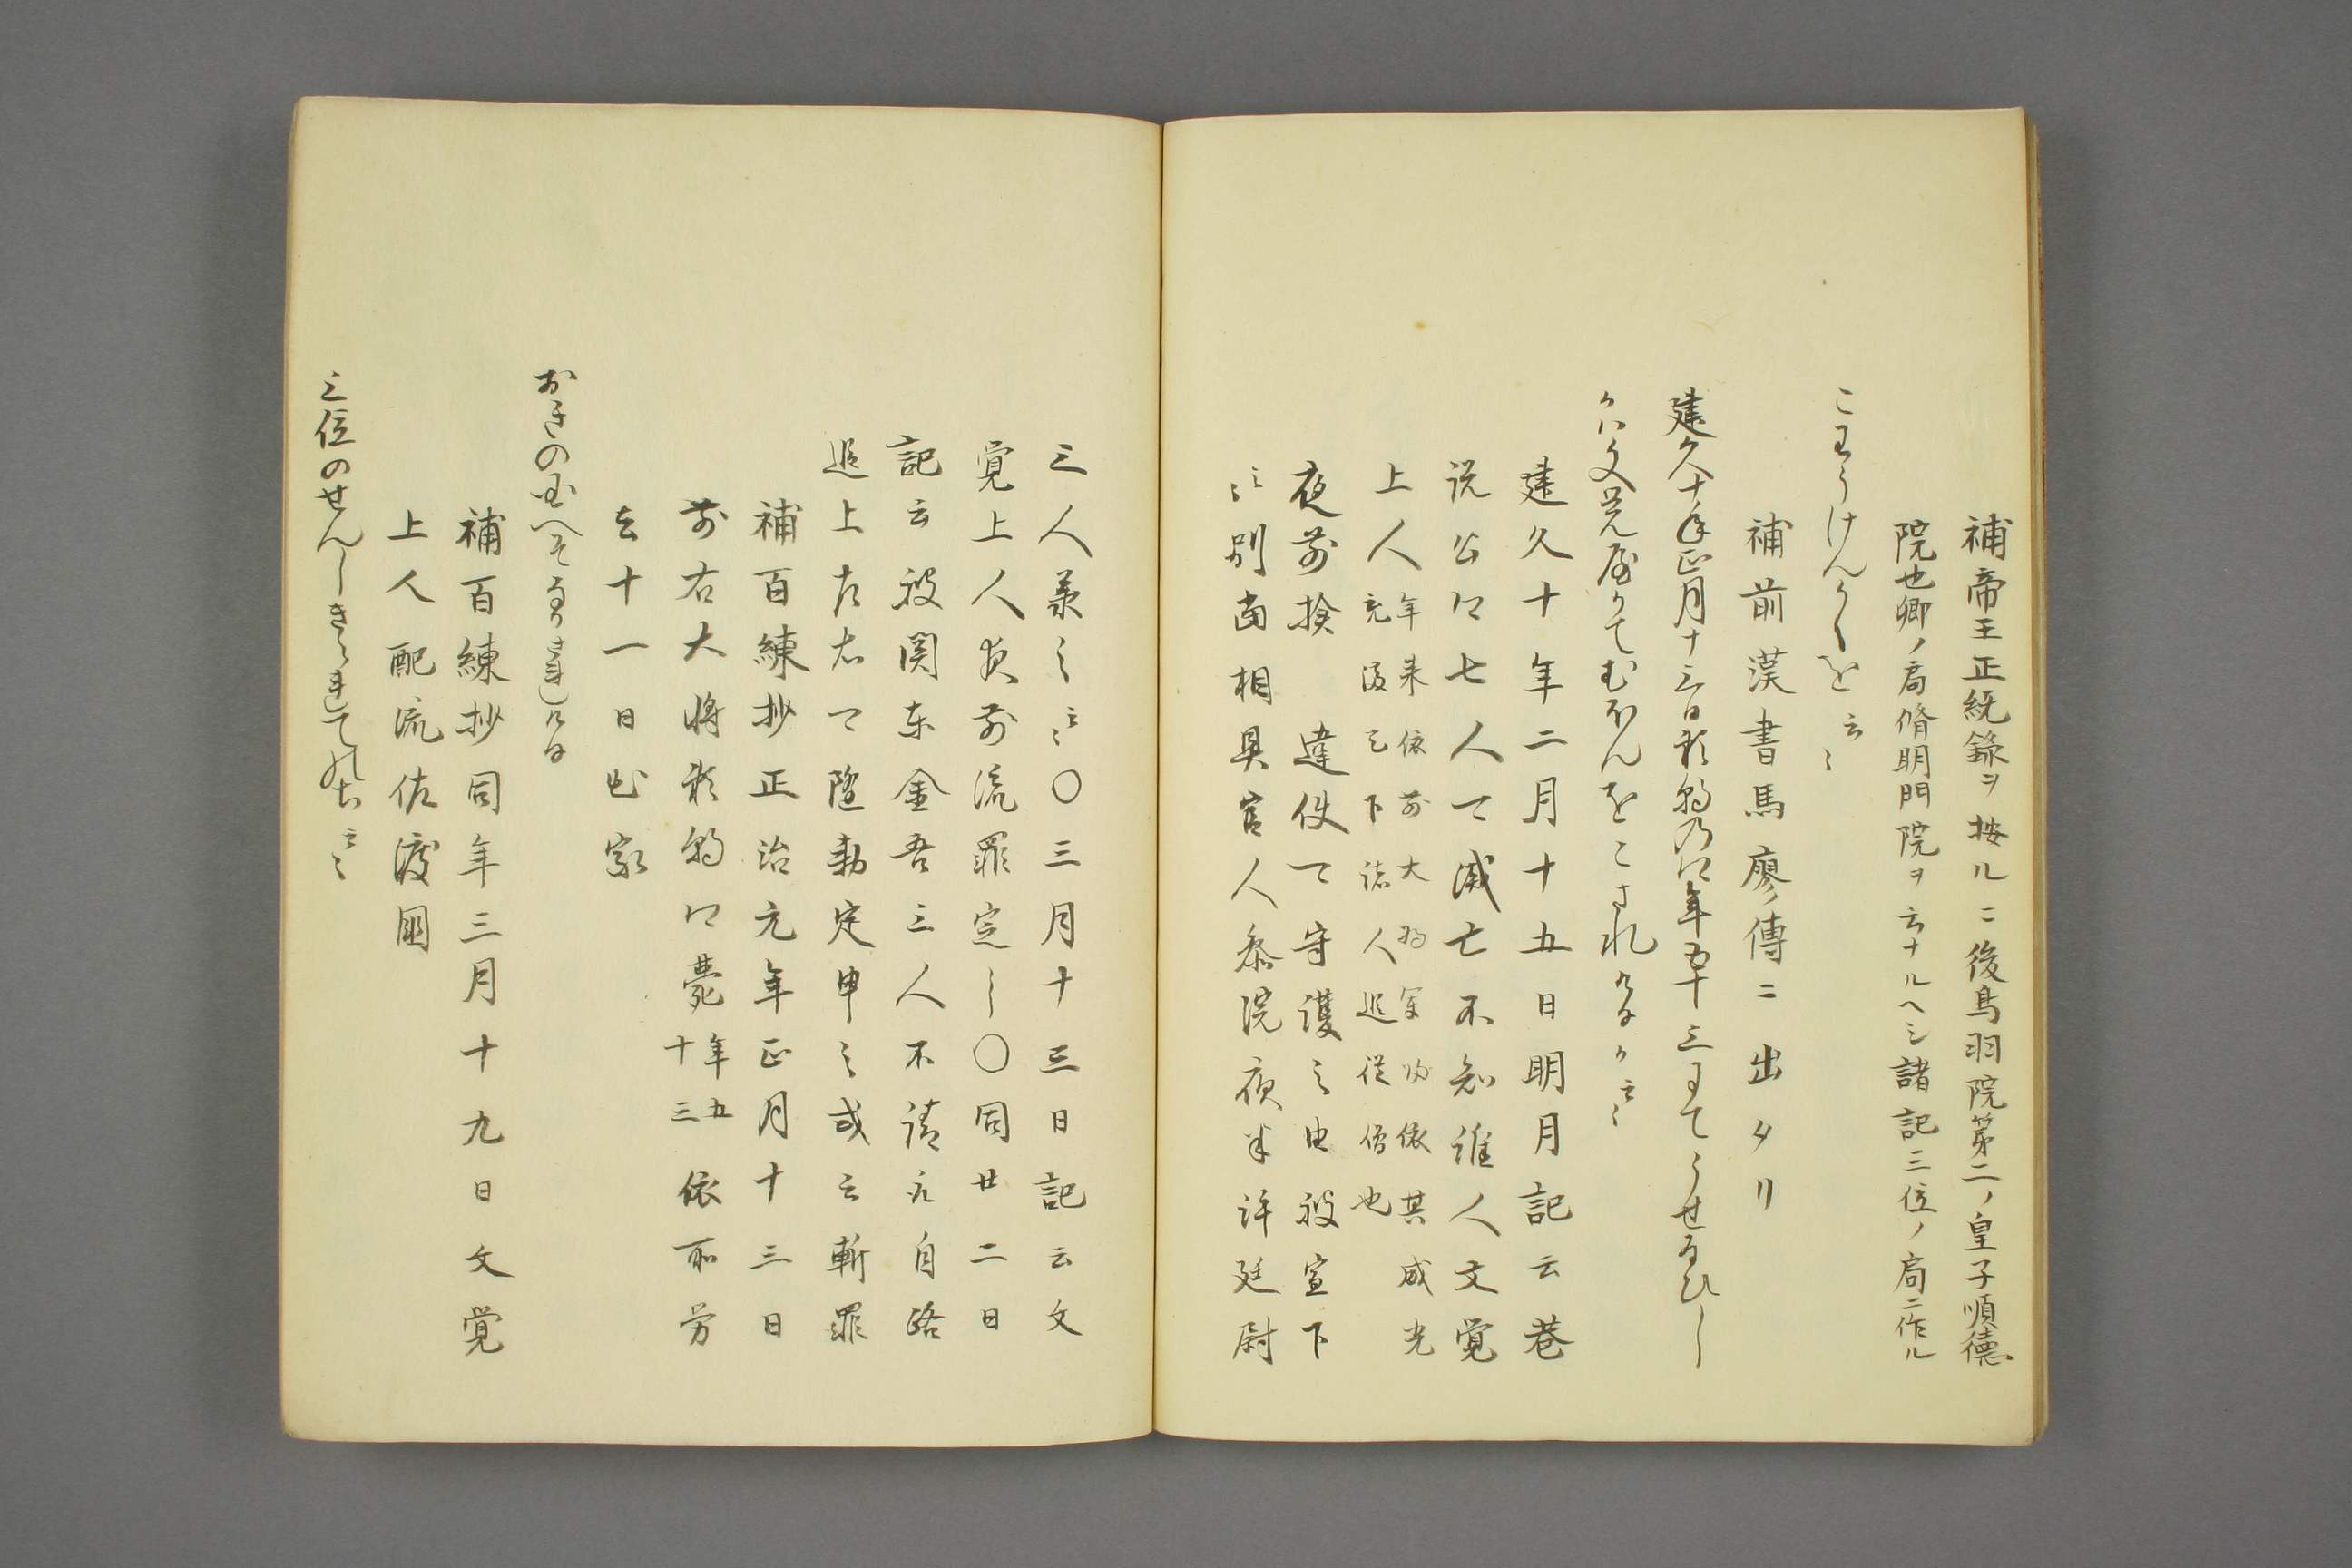 補帝王正統錄ヲ按ルニ後鳥羽院第二ノ皇子順德
院也卿ノ局脩明門院ヲ云ナルヘシ諸記三位ノ局ニ作ル
こまうけんかくを云〻
補前漢書馬廖傳ニ出タリ
建久十年正月十三日頼朝乃卿年五十三にてうせ給ひし
かハ文覚やかてむほんをこされけるか云〻
建久十年二月十五日明月記云巷
説公卿七人可滅亡不知誰人文覚
上人年来依前大将軍帰依其威光
充満天下諸人追従僧也
夜前検違使可守護之由被宣下
云〻別当相具官人参院夜半許廷尉
三人承之云〻〇三月十三日記云文
覚上人夜前流罪定了〇同廿二日
記云被関東金吾三人不請取自路
追上左右可随勅定申之或云斬罪
補百練抄正治元年正月十三日
前右大将頼朝卿薨年五十三依所労
去十一日出家
おきの国へそながされける
補百練抄同年三月十九日文覚
上人配流佐渡國
三位のせんしきられてのち云〻